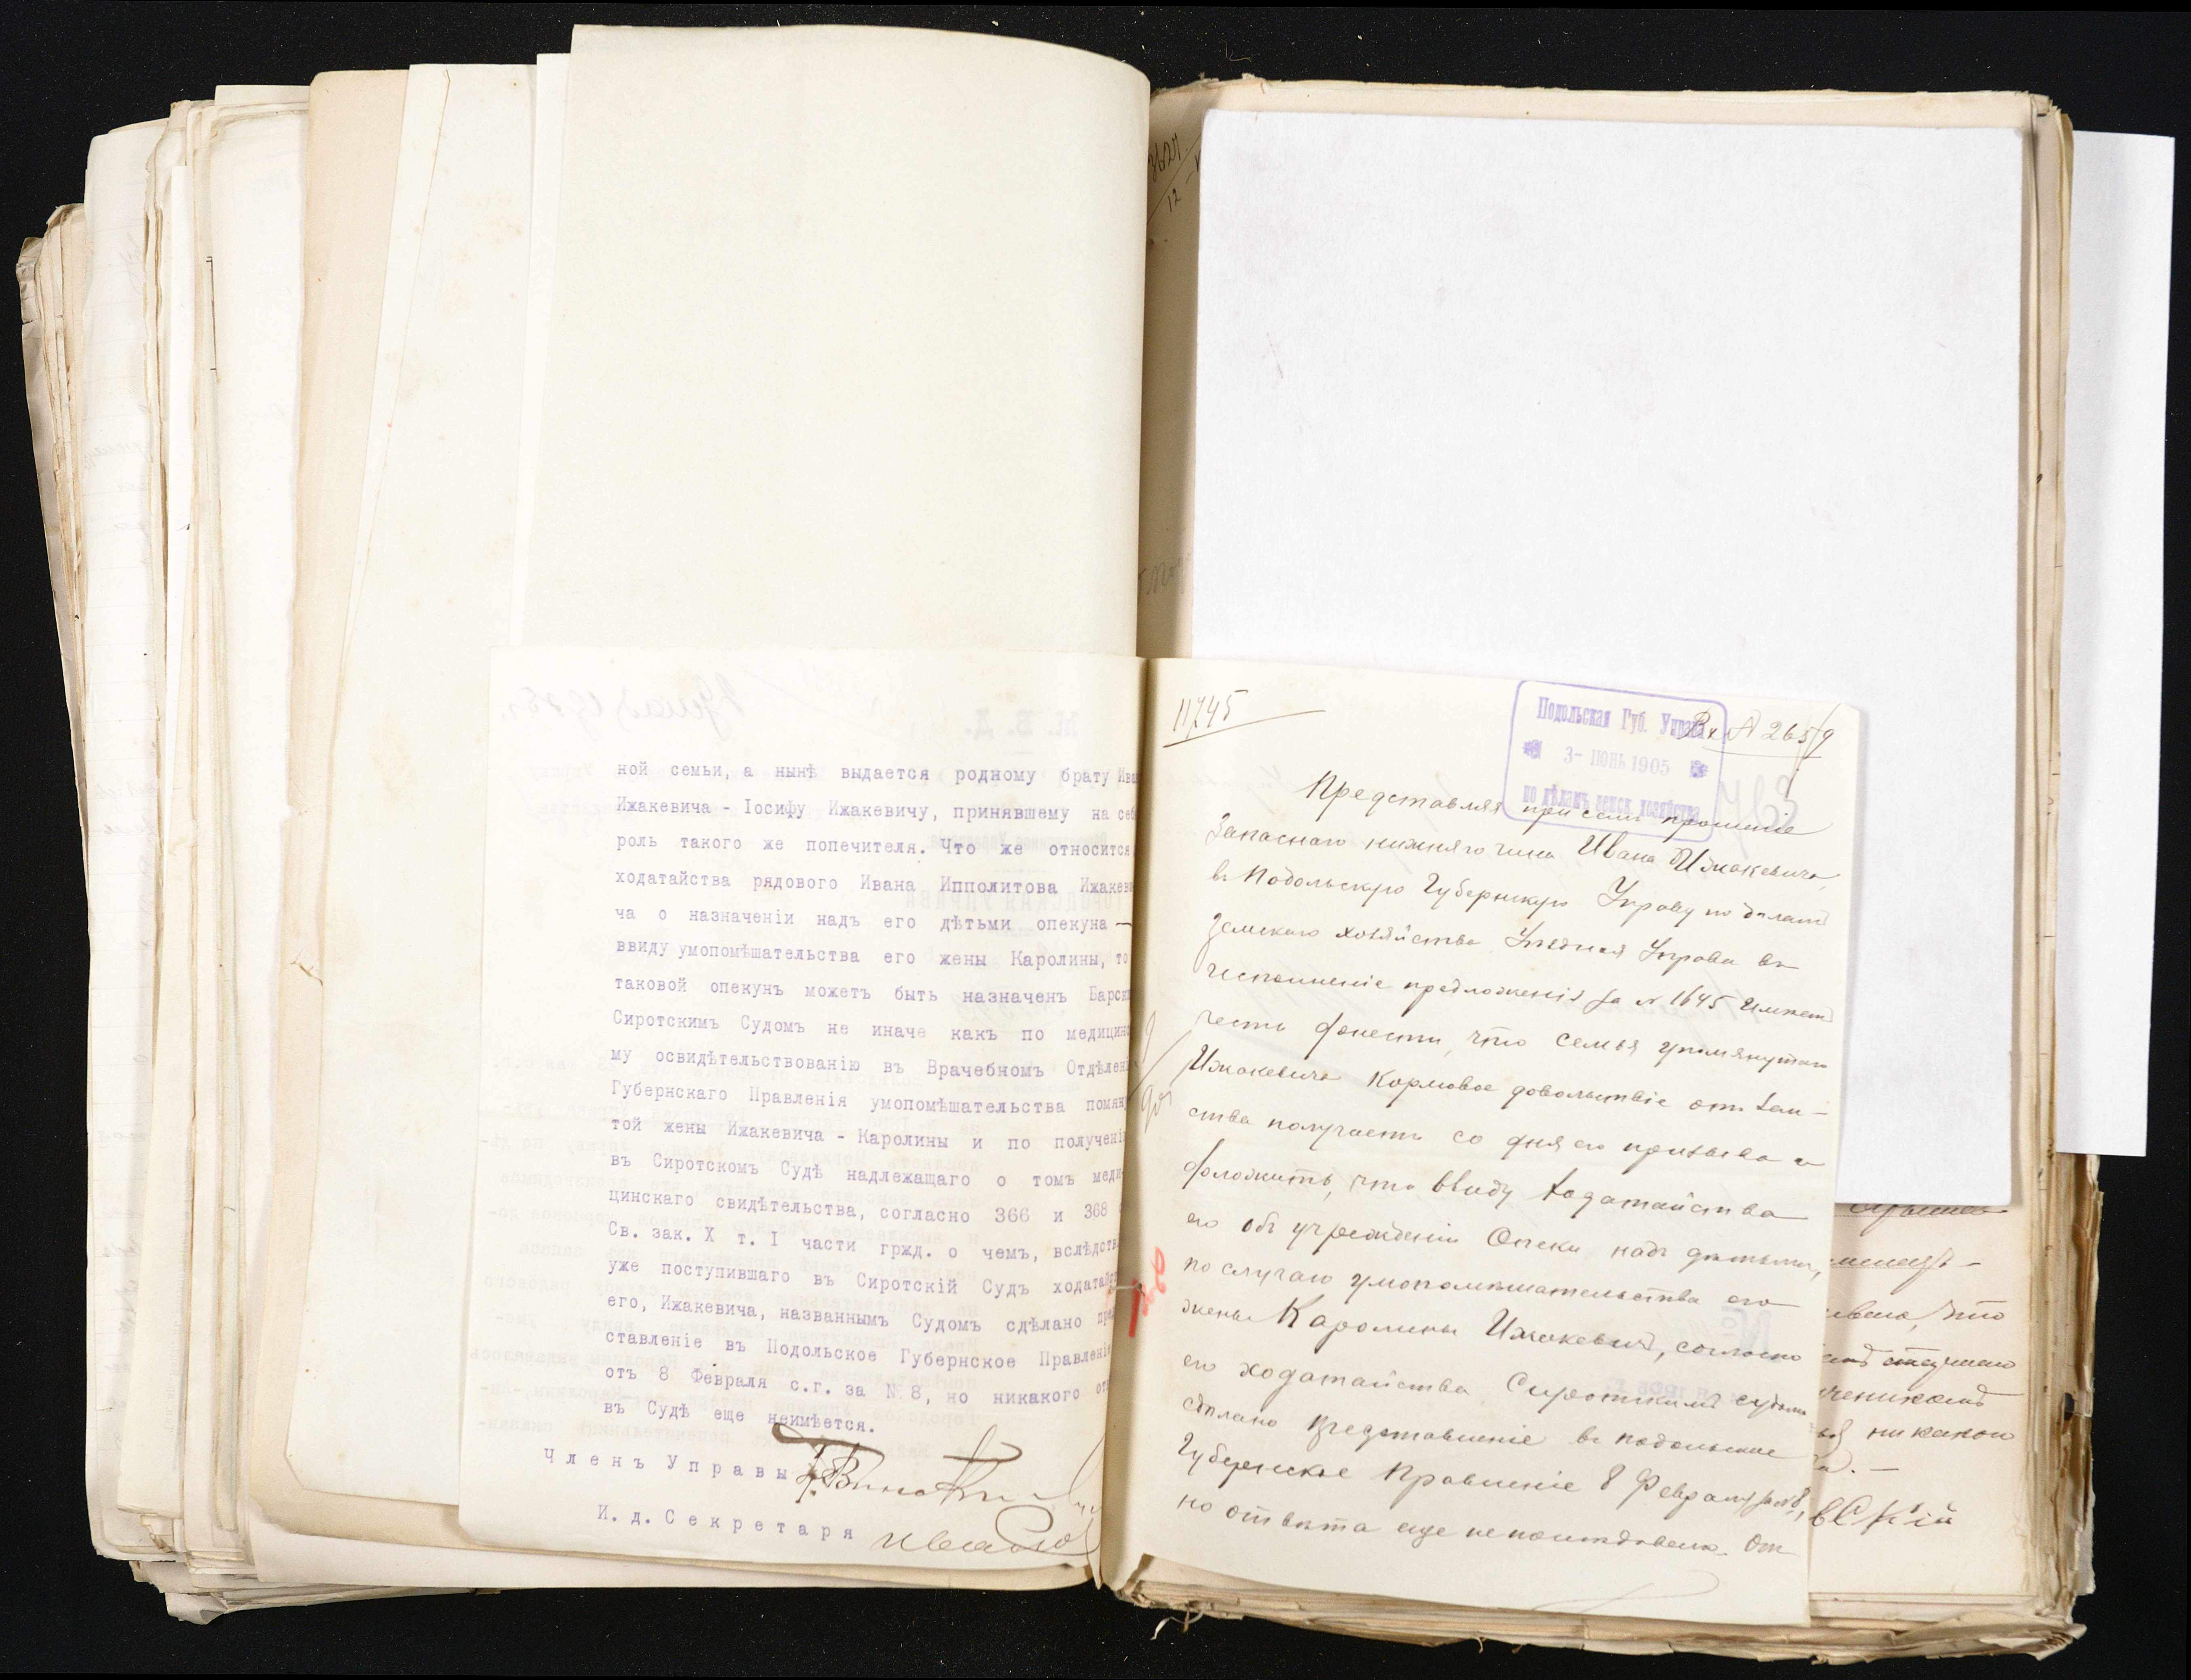 ной семьи, а нынѣ выдается родному брату Ива
Ижакевича - Іосифу Ижакевичу, принявшему на себ
роль такого же попечителя. Что же относится
ходатайства рядового Ивана Ипполитова Ижакеви
ча о назначеніи надъ его дѣтьми опекуна —
ввиду умопомѣшательства его жены Каролины, то
таковой опекунъ можетъ быть назначенъ Барски
Сиротскимъ Судомъ не иначе какъ по медицинс
му освидѣтельствованію въ Врачебномъ Отдѣлені
Губернскаго Правленія умопомѣшательства помян
той жены Ижакевича - Каролины и по полученіи
въ Сиротскомъ Судѣ надлежащаго о томъ меди-
цинскаго свидѣтельства, согласно 366 и 368
Св. зак. X т. I части гржд. о чемъ, вслѣдств
уже поступившаго въ Сиротскій Судъ ходатайс
его, Ижакевича, названнымъ Судомъ сдѣлано пред
ставленіе въ Подольское Губернское Правленіе
отъ 8 Февраля с.г. за № 8, но никакого отв
въ Судѣ еще неимѣется.
Членъ Управы
И. д. Секретаря
11745
Подольская Губ. Управа
Вх № 2659
3- ІЮНЬ 1905
по дѣламъ земск. хозяйства
763
Представляя при семъ прошеніе
Запаснаго нижняго чина Ивана Ижакевича,
въ Подольскую Губернскую Управу по дѣламъ
Земскаго хозяйства Уѣздная Управа во
исполненіе предложенія за № 1645 имѣетъ
честь донести, что семья упомянутаго
Ижакевича Кормовое довольствіе отъ Зем-
ства получаетъ со дня его призыва и
доложить, что ввиду ходатайства
его объ учрежденіи Опеки надъ дѣтьми,
по случаю умопомѣшательства его
жены Каролины Ижакевичъ, согласно
его ходатайства Сиротскимъ судомъ
сдѣлано представленіе въ Подольское
Губернское Правленіе 8 Февраля за № 8,
но отвѣта еще не послѣдовало. От-
что
никакой